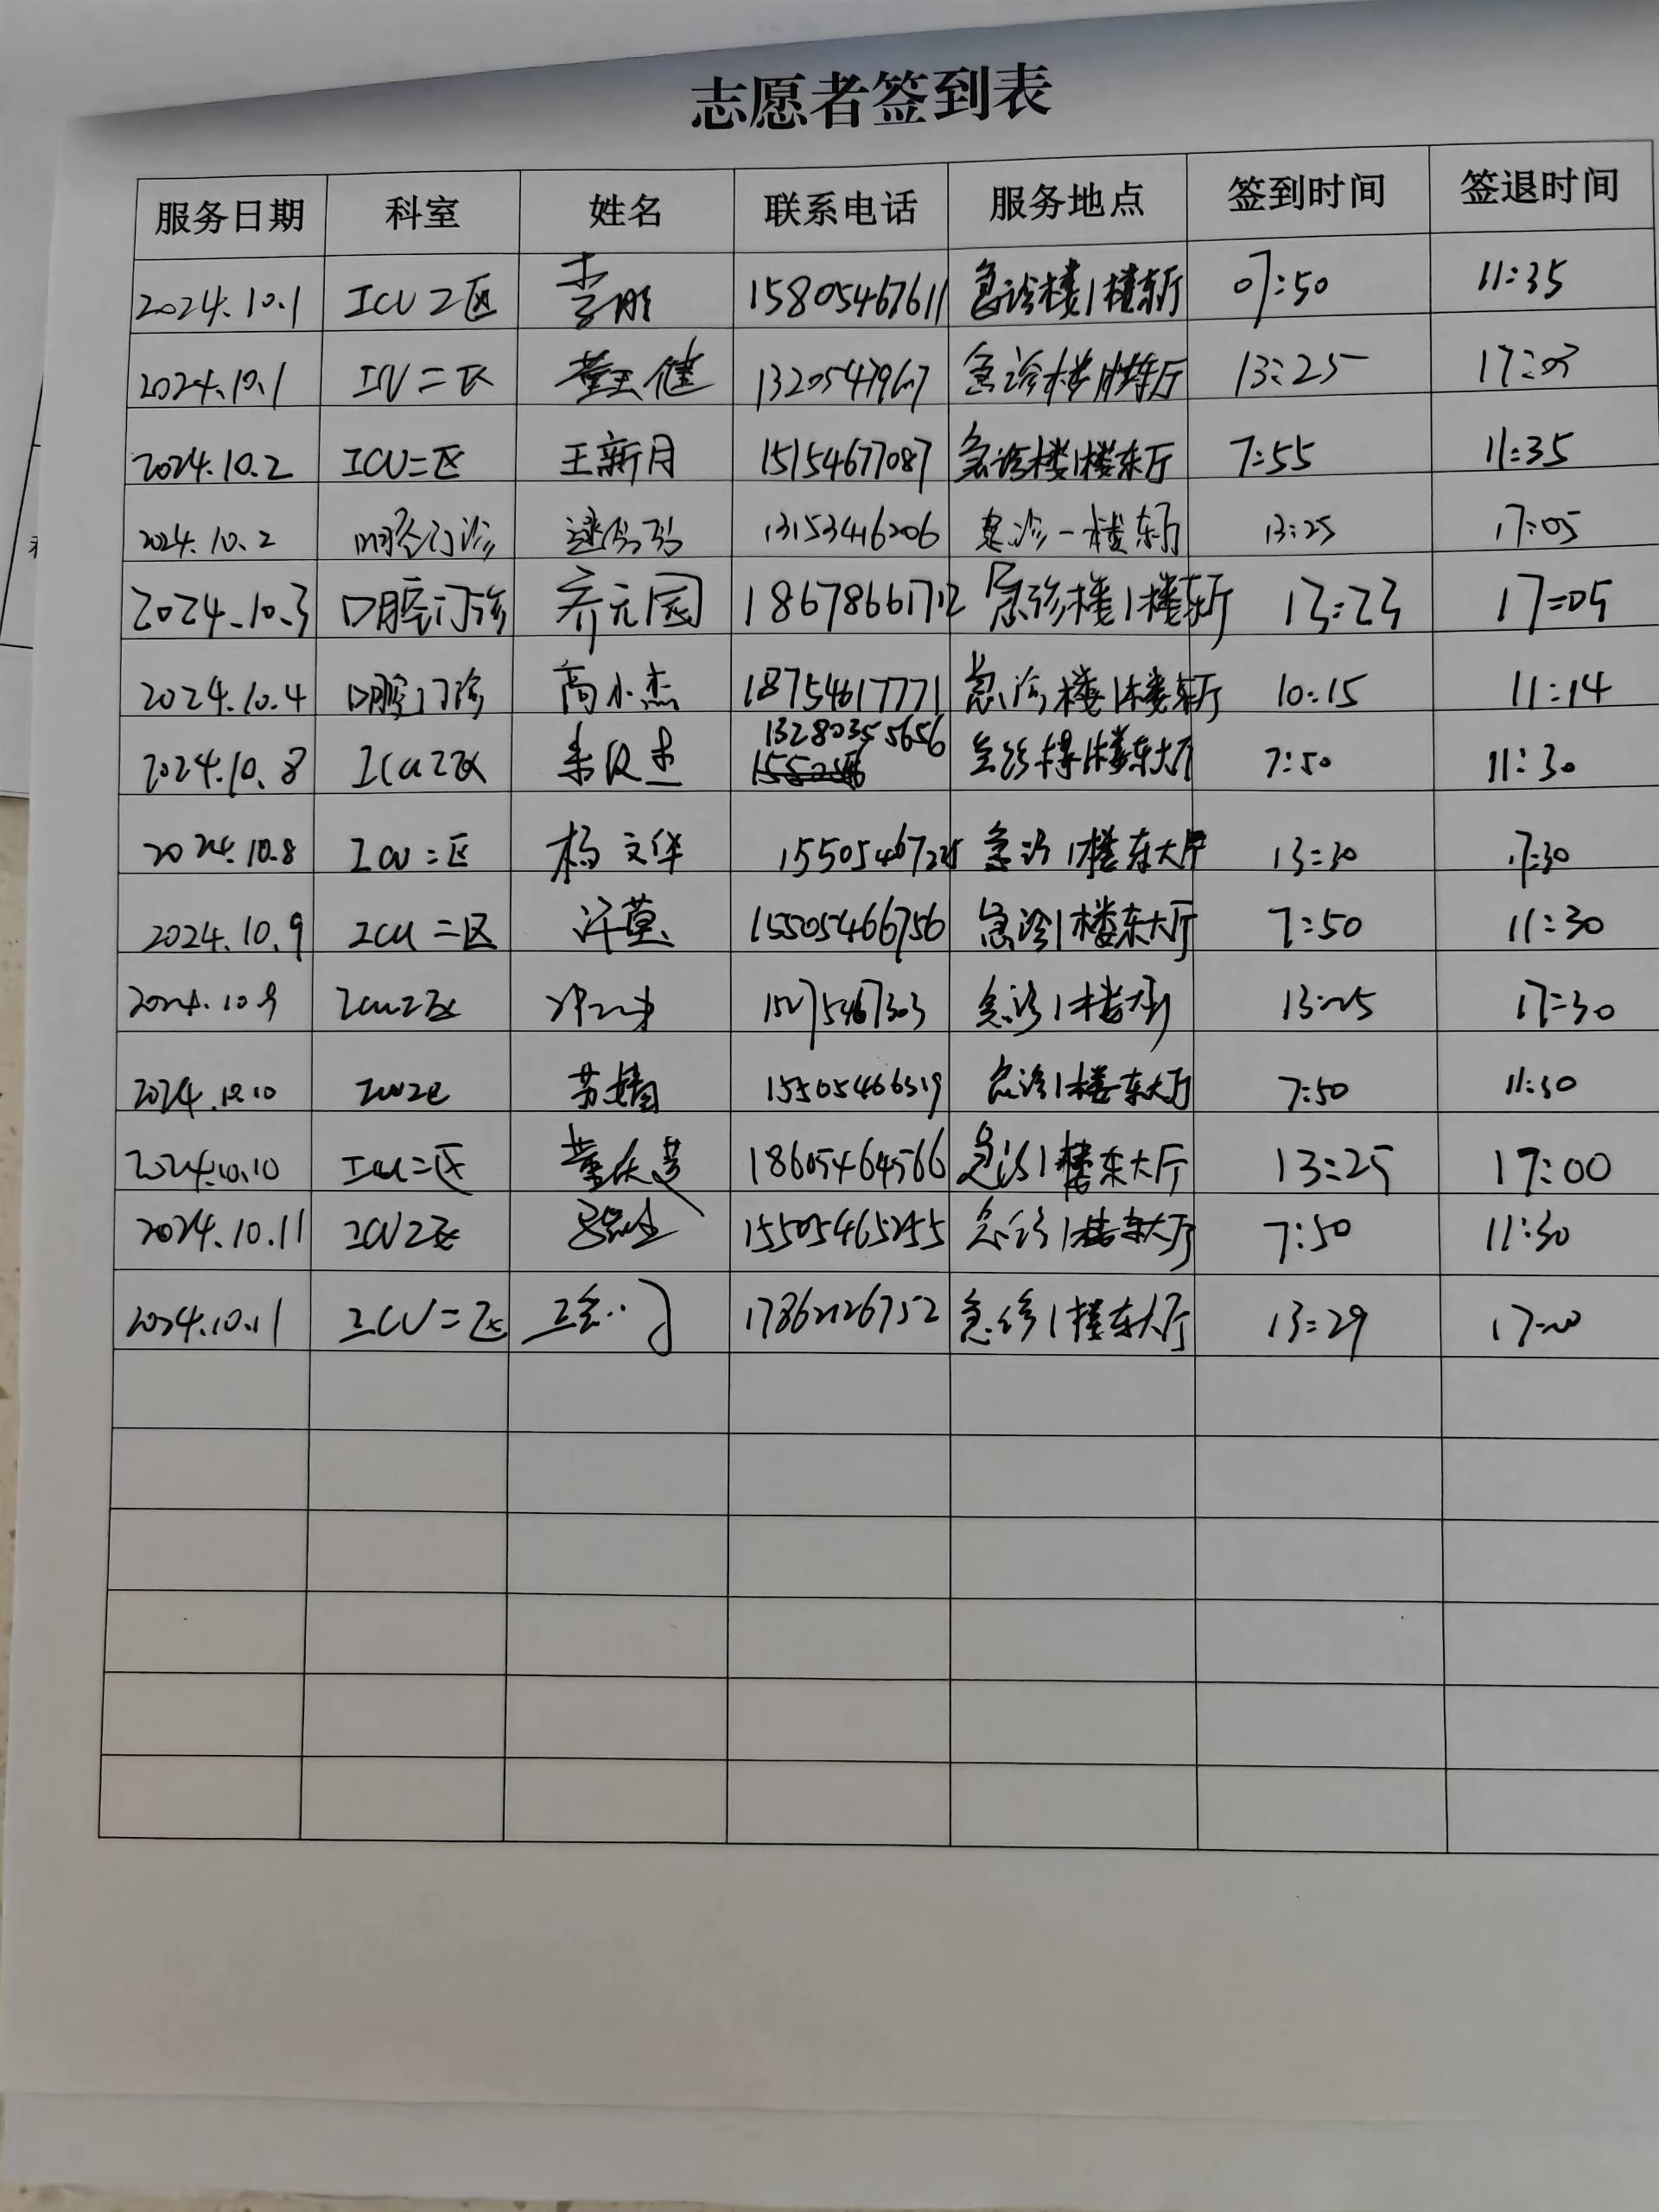 志愿者签到表
服务日期 科室 姓名 联系电话 服务地点 签到时间 签退时间
2024.10.1 ICU2区 15805467611 急诊楼1楼东厅 07:50 11:35
2024.10.1 ICU二区 急诊楼1楼东厅 13:25 17:03
2024.10.2 ICU二区 王新月 15154677087 急诊楼1楼东厅 7:55 11:35
2024.10.2 口腔门诊 13153416206 急诊一楼东厅 13:25 17:05
2024.10.3 口腔门诊 乔元园 18678661712 急诊楼1楼东厅 13:23 17:05
2024.10.4 口腔门诊 高小杰 18754617771 急诊楼1楼东厅 10:15 11:14
2024.10.8 ICU2区 13280355656 急诊楼1楼东大厅 7:50 11:30
2024.10.8 ICU二区 杨文华 急诊1楼东大厅 13:30 17:30
2024.10.9 ICU二区 15505466756 急诊1楼东大厅 7:50 11:30
2024.10.9 ICU2区 急诊1楼 13:25 17:30
2024.10.10 ICU2区 苏婧 15505466319 急诊1楼东大厅 7:50 11:30
2024.10.10 ICU二区 18605464566 急诊1楼东大厅 13:25 17:00
2024.10.11 ICU2区 15505465255 急诊1楼东大厅 7:50 11:30
2024.10.11 ICU二区 17862126752 急诊1楼东大厅 13:29 17:00